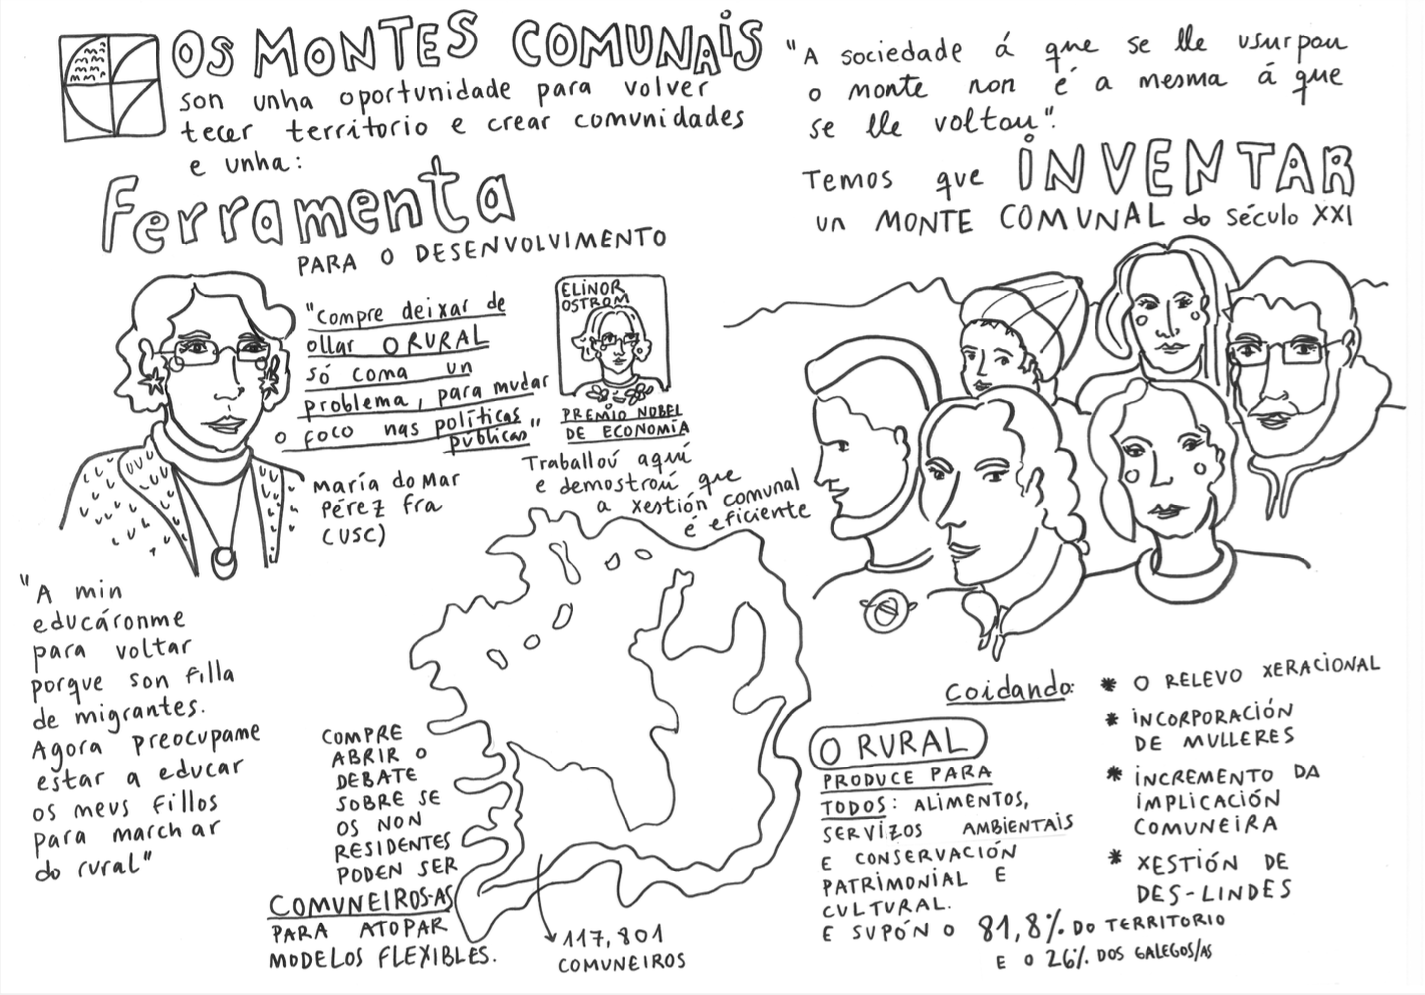 OS MONTES COMUNAIS
son unha oportunidade para volver
tecer territorio e crear comunidades
e unha:
Ferramenta
PARA O DESENVOLVIMENTO
"Compre deixar de
ollar O RURAL
só coma un
problema, para mudar
o foco nas políticas
públicas"
María do Mar
Pérez Fra
(USC)
ELINOR
OSTROM
PREMIO NOBEL
DE ECONOMÍA
Traballou aquí
e demostrou que
a xestión comunal
é eficiente
"A min
educáronme
para voltar
porque son filla
de migrantes.
Agora preocupame
estar a educar
os meus fillos
para marchar
do rural"
COMPRE
ABRIR O
DEBATE
SOBRE SE
OS NON
RESIDENTES
PODEN SER
COMUNEIROS-AS
PARA ATOPAR
MODELOS FLEXIBLES.
117,801
COMUNEIROS
"A sociedade á que se lle usurpou
o monte non é a mesma á que
se lle voltou".
Temos que INVENTAR
un MONTE COMUNAL do século XXI
Coidando:
* O RELEVO XERACIONAL
* INCORPORACIÓN
DE MULLERES
* INCREMENTO DA
IMPLICACIÓN
COMUNEIRA
* XESTIÓN DE
DES-LINDES
O RURAL
PRODUCE PARA
TODOS: ALIMENTOS,
SERVIZOS AMBIENTAIS
E CONSERVACIÓN
PATRIMONIAL E
CULTURAL.
E SUPÓN O 81,8% DO TERRITORIO
E O 26% DOS GALEGOS/AS